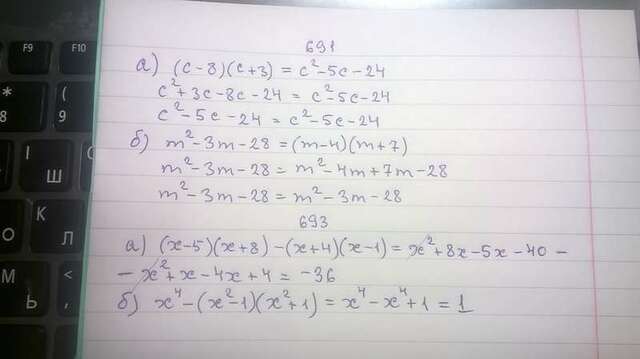 F9 F10
691
а) (c-8)(c+3) = c²-5c-24
* 8 ( 9
c²+3c-8c-24 = c²-5c-24
c²-5c-24 = c²-5c-24
б) m²-3m-28 = (m-4)(m+7)
I Ш
m²-3m-28 = m²-4m+7m-28
m²-3m-28 = m²-3m-28
К Л О
693
а) (x-5)(x+8) - (x+4)(x-1) = x²+8x-5x-40 -
- x²+x-4x+4 = -36
М Ь < ,
б) x⁴-(x²-1)(x²+1) = x⁴-x⁴+1 = 1